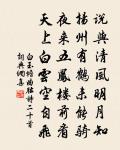 說與清風明月知
揚州有鶴未能騎
夜來五鳳樓前看
天上白雲空自飛
白玉蟾曲肱詩二十首
詞典網集